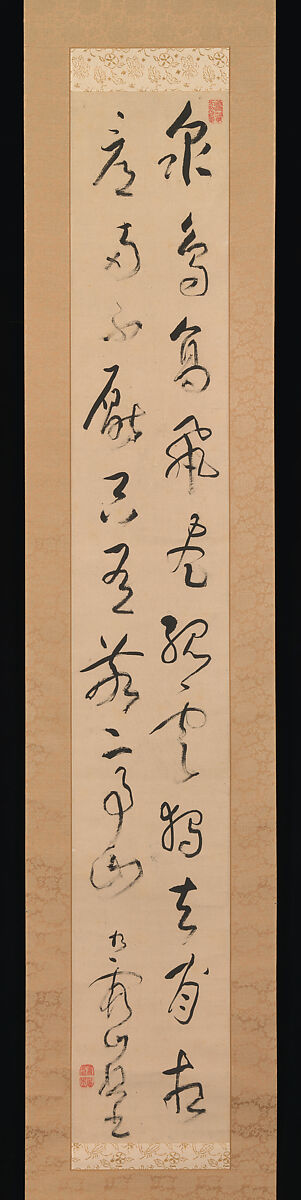 衆鳥高飛盡孤雲獨去閑相
看兩不厭只有敬亭山 九霞山樵